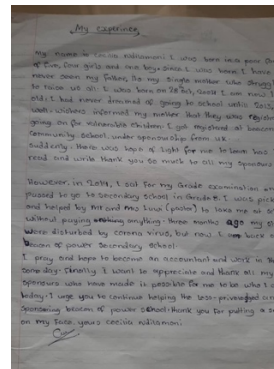 My experience
My name is Cecilia Ndilamoni. I was born in a poor
of five, four girls and one boy. Since I was born I have
never seen my father, its my single mother who
to raise us all. I was born on 28 July, and I am now
old. I had never dreamed of going to school until 2013,
well-wishers informed my mother that they was
going on for vulnerable children. I got registered at beacon
Community School, under sponsorship from UK.
Suddenly, there was hope of light for me to learn how
read and write thank you so much to all my sponsors
However, in 2019, I sat for my Grade examination and
passed to go to secondary school in Grade 8. I was
and helped by Mr and Mrs (pastor) to take me at
without paying anything. three months ago my
were disturbed by corona virus, but now I am back
beacon of power secondary school.
I pray and hope to become an accountant and work in
some day. finally I want to appreciate and thank all my
Sponsors who have made is possible for me to be who I
today. I urge you to continue helping the less-privileged
sponsoring beacon of power school. thank you for putting a
on my face. yours cecilia ndilamoni.